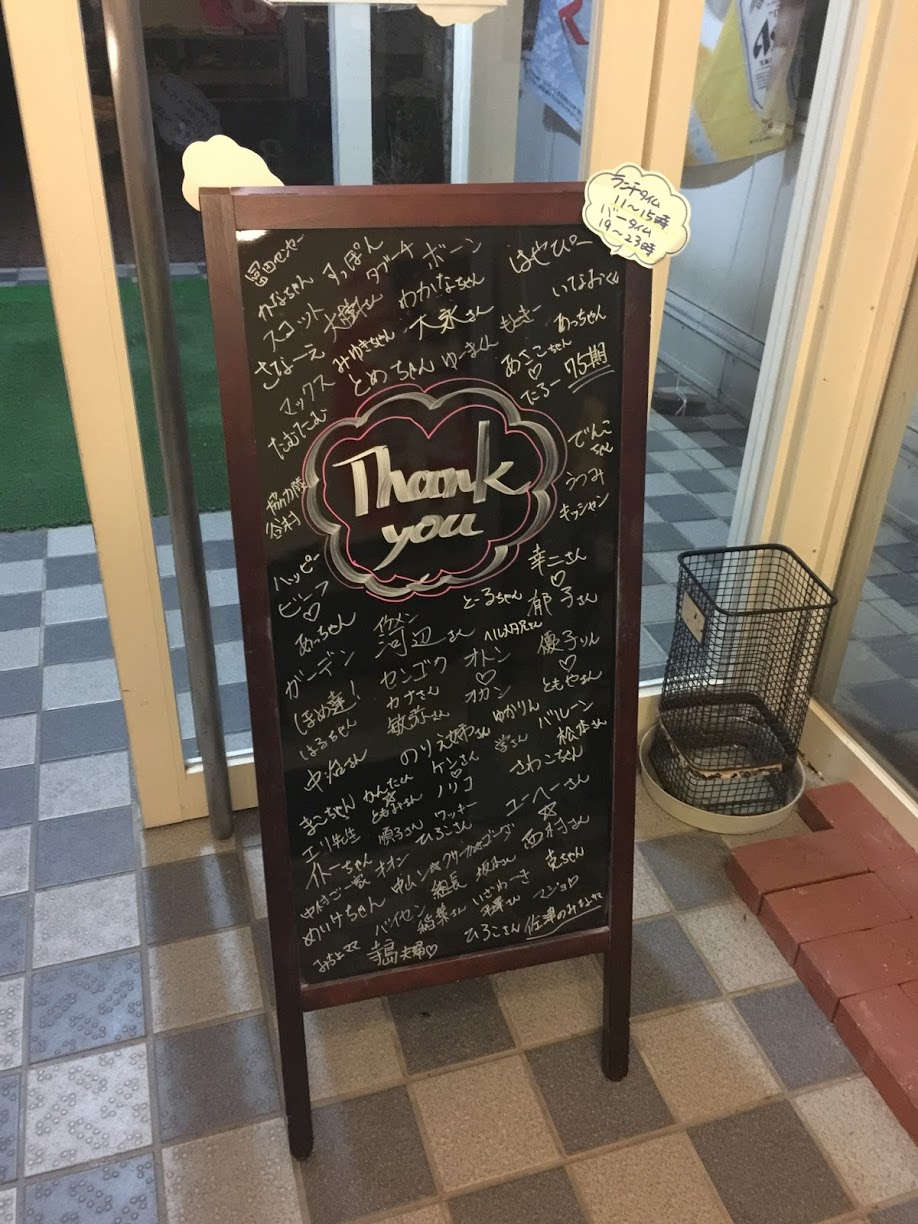 ランチタイム
11〜15時
バータイム
19〜23時
すっぽん
タブーチ
ボーン
はせぴー
かなちゃん
大樹さん
わかなちゃん
いてなおくん
スコット
みゆきちゃん
大永さん
もときー
あっちゃん
さなーえ
とめちゃん
ゆーまくん
あさこちゃん
♡
たろー
75期
マックス
たむたむ
Thank
you
でんこ
ちゃん
うつみ
キッシャン
協力隊
谷村
ハッピー
ビーフ
♡
あっちゃん
イケメン
河辺さん
とーるちゃん
幸二さん
♡
郁子さん
ガーデン
センゴク
オトン
♡
オカン
優子りん
♡
ともやさん
ほめ達!
はるちゃん
カナさん
のりえ姉さん
ゆかりん
バルーン
松本さん
ケンさん
♡
ノリコ
さわこちゃん
まこちゃん
ともみちゃん
エリ先生
順子さん
ワッキー
ひろこさん
ユーヘーさん
☆
西村さん
オオン
中村ご一家
組長
坂本さん
克ちゃん
めいけちゃん
バイセン
稲葉さん
いざわーき
マジョロ
みちょママ
寺島夫婦♡
ひろこさん